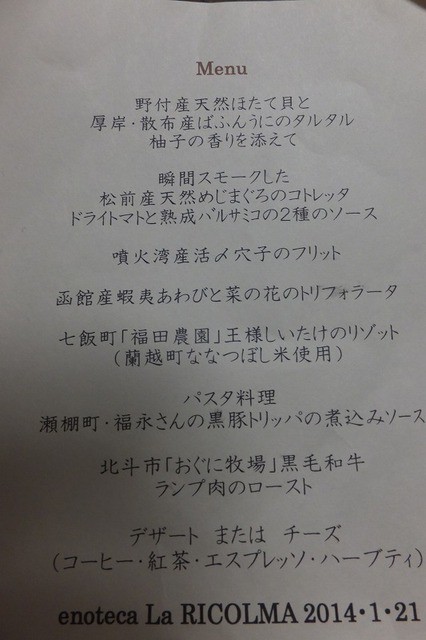 Menu
野付産天然ほたて貝と
厚岸・散布産ばふんうにのタルタル
柚子の香りを添えて
瞬間スモークした
松前産天然めじまぐろのコトレッタ
ドライトマトと熟成バルサミコの2種のソース
噴火湾産活〆穴子のフリット
函館産蝦夷あわびと菜の花のトリフォラータ
七飯町「福田農園」王様しいたけのリゾット
(蘭越町ななつぼし米使用)
パスタ料理
瀬棚町・福永さんの黒豚トリッパの煮込みソース
北斗市「おぐに牧場」黒毛和牛
ランプ肉のロースト
デザート または チーズ
(コーヒー・紅茶・エスプレッソ・ハーブティ)
enoteca La RICOLMA 2014・1・21